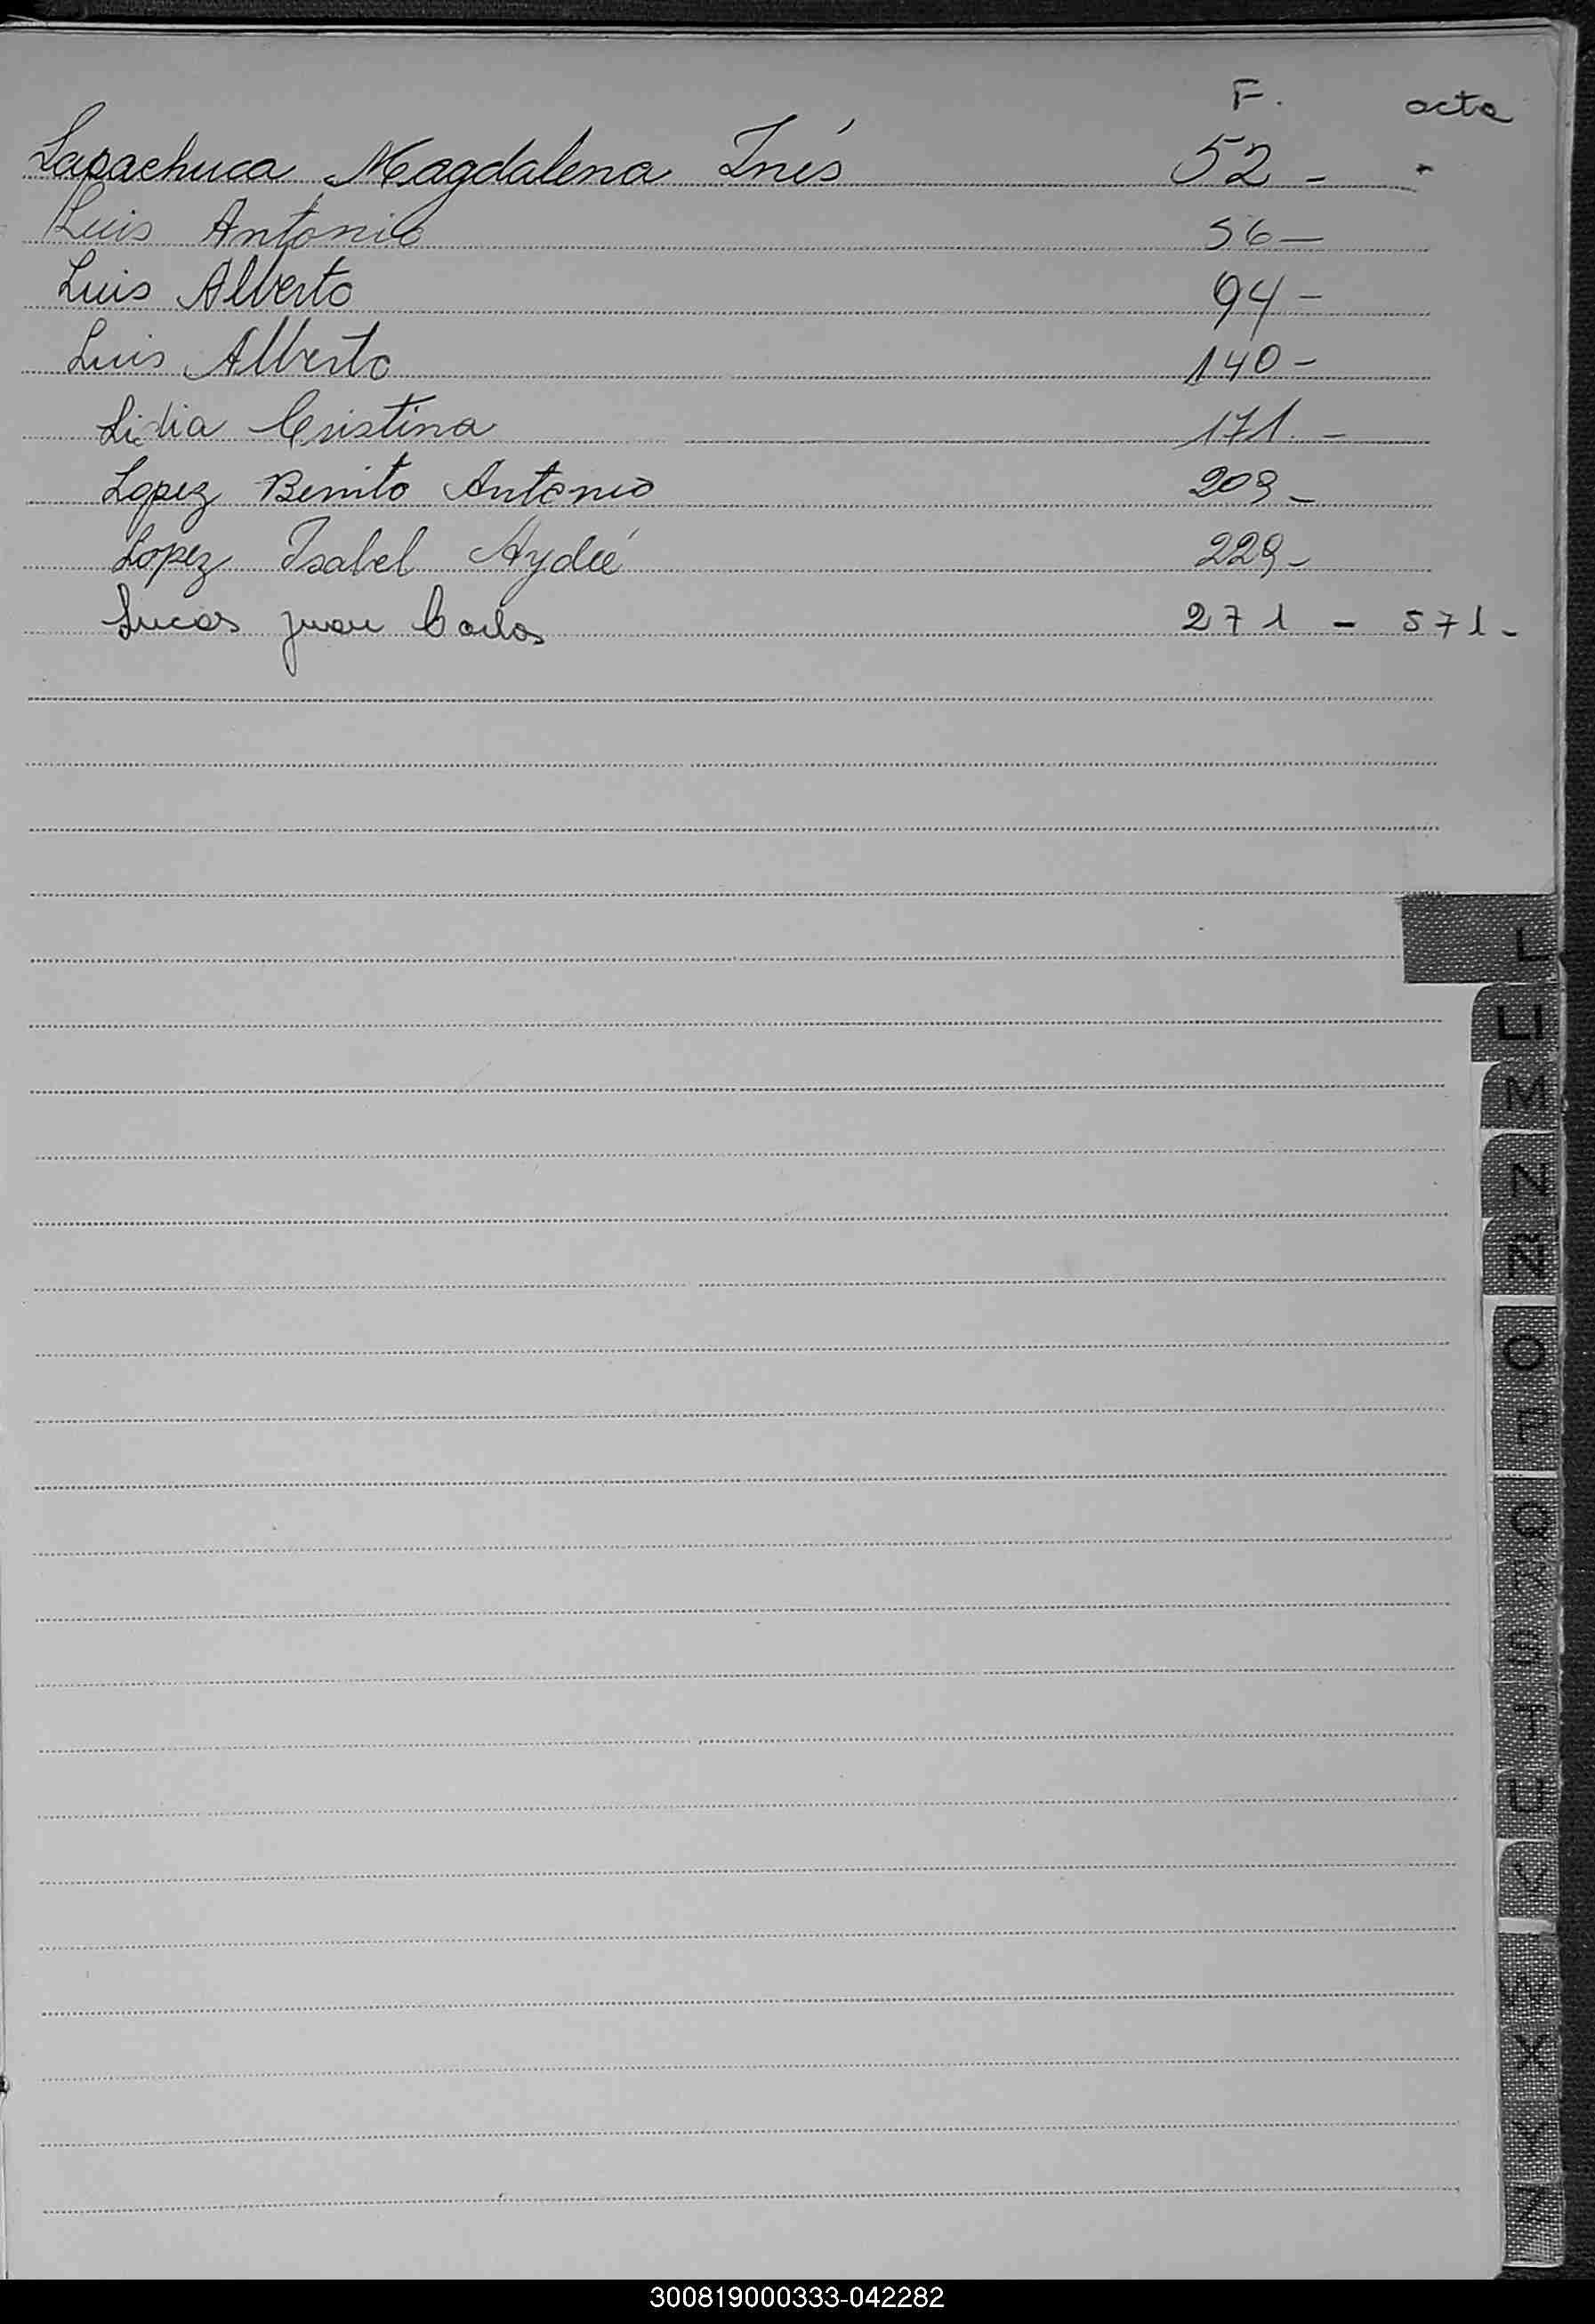 F. acta
Lapachuca Magdalena Inés 52 - "
Luis Antonio 56 -
Luis Alberto 94 -
Luis Alberto 140 -
Lidia Cristina 171. -
Lopez Benito Antonio 209 -
Lopez Isabel Aydeé 229 -
Lucas Juan Carlos 271 - 571 -
L
LL
M
N
Ñ
O
P
Q
R
S
T
U
V
W
X
Y
Z
300819000333-042282